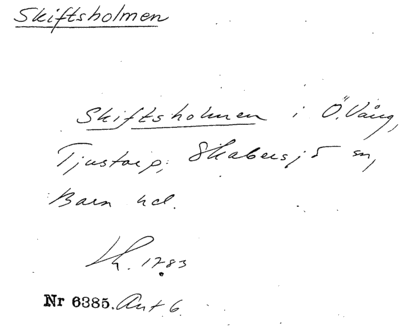 Skiftsholmen
Skiftsholmen i Ö. Vång,
Tjustorp, Skabersjö sn,
Bara hd.
Lh. 1783
Nr 6385. Avt 6.